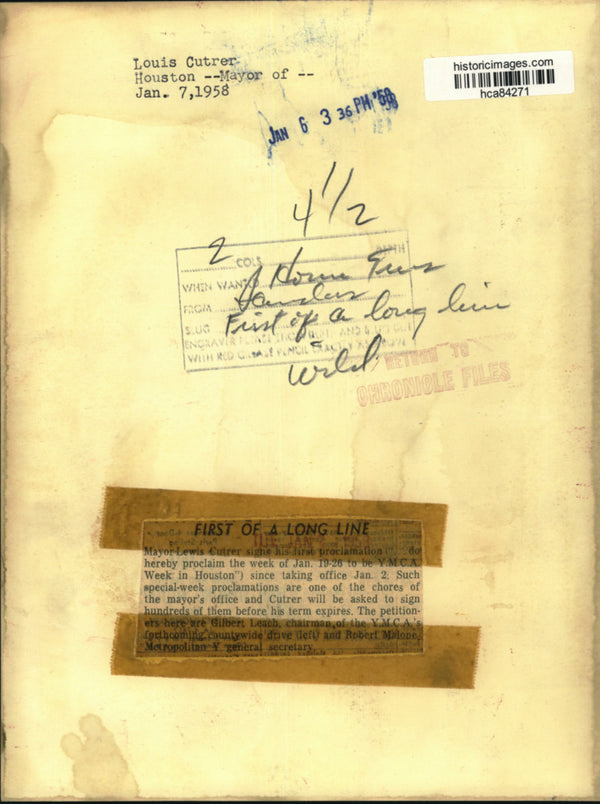 Louis Cutrer
Houston --Mayor of --
Jan. 7,1958
historicimages.com
hca84271
JAN 6 3 36 PM '58
4 1/2
2 COLS DEPTH
WHEN WANTED
FROM
SLUG First of a long line
WITH RED GREASE PENCIL
Wild
RETURN TO
CHRONICLE FILES
FIRST OF A LONG LINE
Mayor Lewis Cutrer signs his first proclamation (". . . do
hereby proclaim the week of Jan. 19-26 to be Y.M.C.A.
Week in Houston") since taking office Jan. 2. Such
special-week proclamations are one of the chores of
the mayor's office and Cutrer will be asked to sign
hundreds of them before his term expires. The petition-
ers here are Gilbert Leach, chairman of the Y.M.C.A.'s
forthcoming countywide drive (left) and Robert Malone,
Metropolitan Y general secretary.